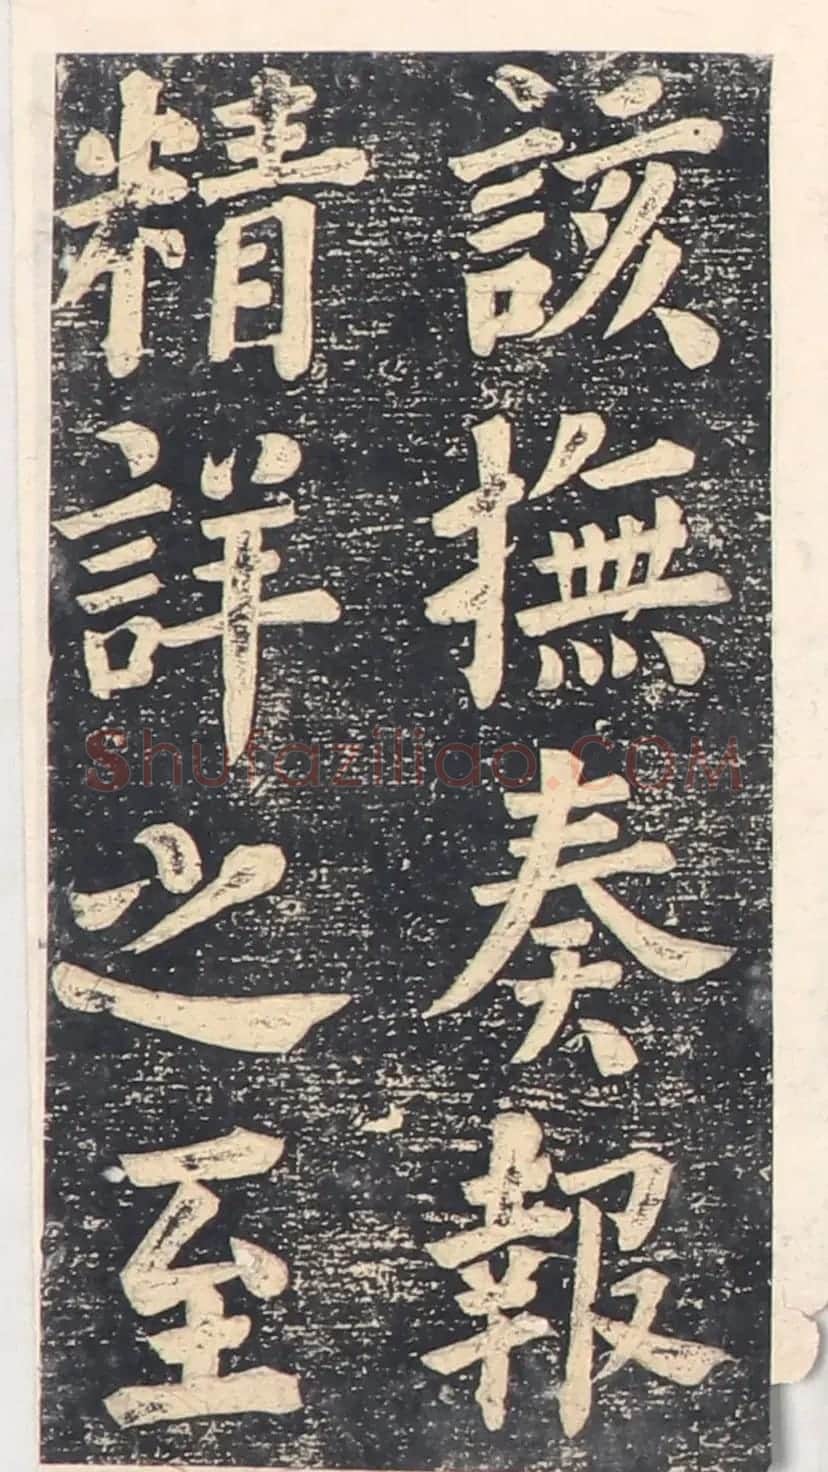 該撫奏報
精詳之至
Shufaziliao.COM